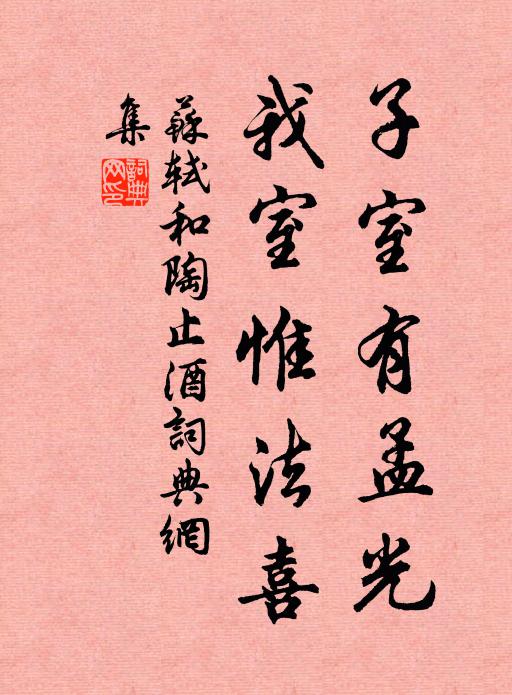 子室有孟光
我室惟法喜
蘇軾和陶止酒詞典網
集
詞典網印